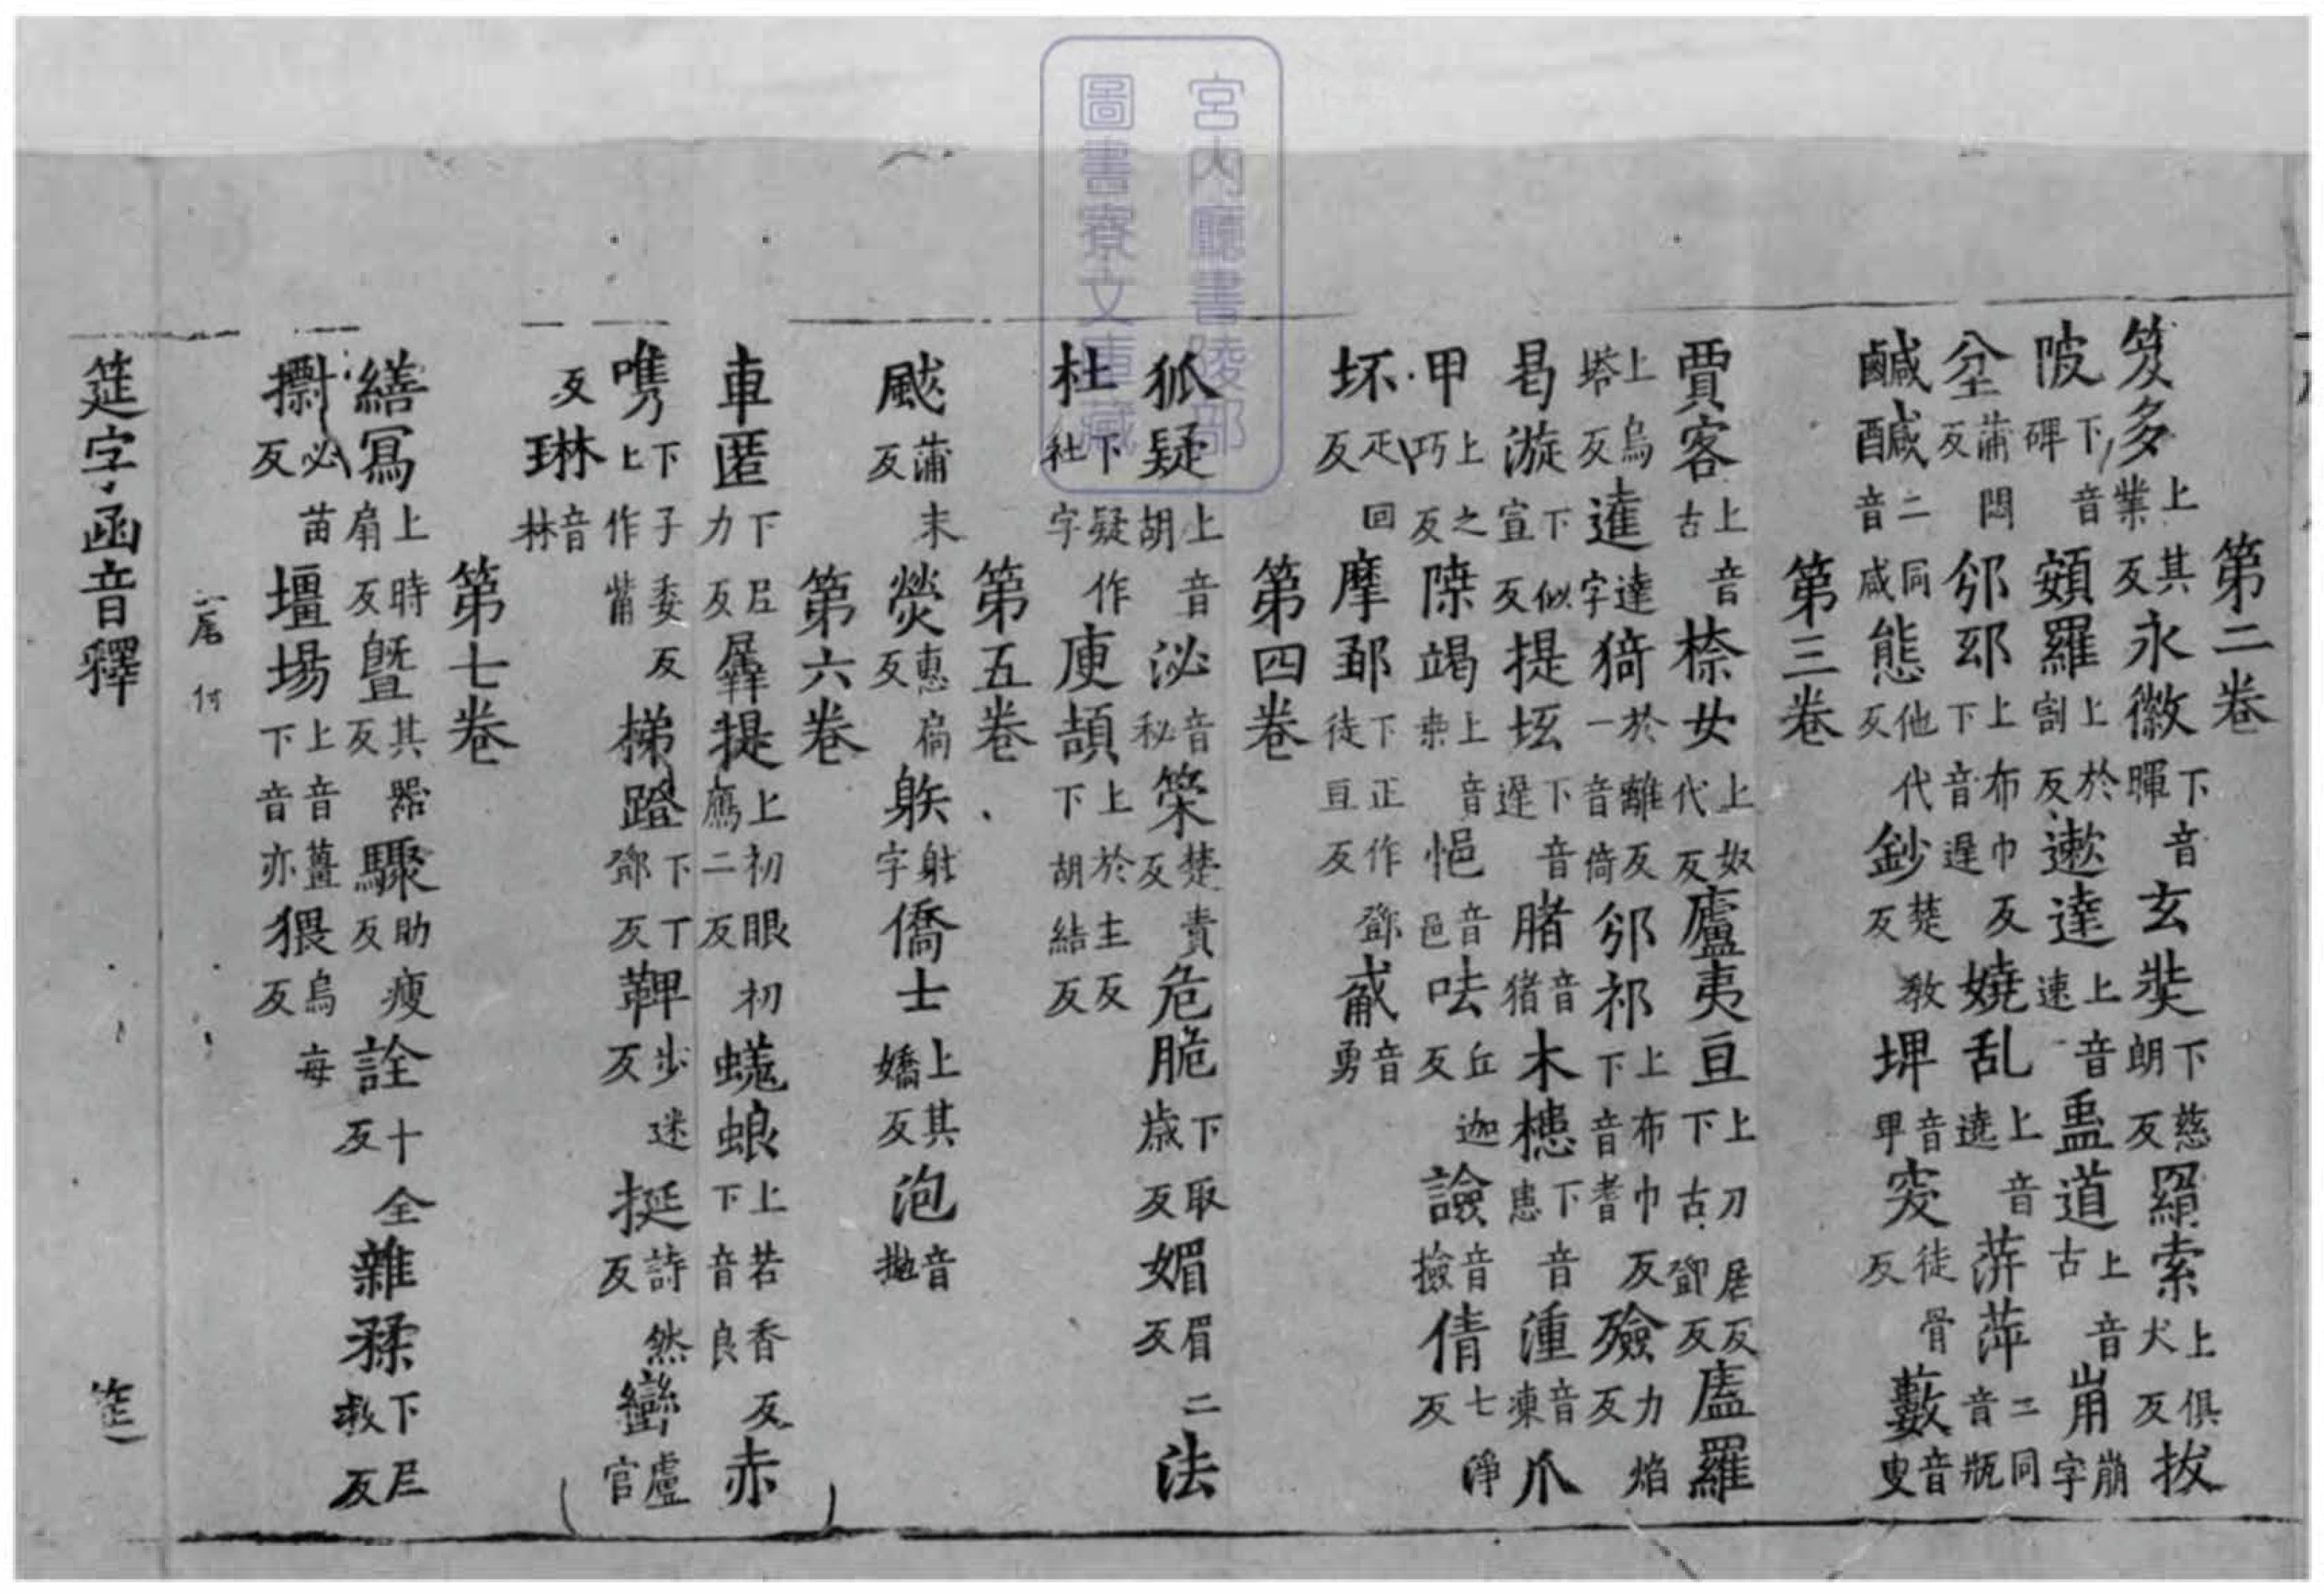 第二卷
笈多上其業反永徽下音暉玄奘下慈朗反羂索上俱犬反拔
陂下音碑頞羅上於割反遬達上音速盬道上音古𡹔崩字
坌蒲悶反邠邳上布巾反下音遲嬈乱上音遶蓱萍二同音瓶
鹹醎二同音咸態他代反鈔楚教反埤音卑突徒骨反藪音叟
第三卷
賈客上音古㮈女上奴代反廬夷亘上力居反下古鄧反廬羅
上烏塔反薘達字猗於離反一音倚邠祁上布巾反下音耆殮力焰反
曷漩下似宣反提坻下音遲䐗音猪木槵下音患湩音凍爪
甲上之巧反㮈竭上音柰悒音邑呿丘迦反譣音撿倩七淨反
坏疋回反摩鄧下正作鄧徒亘反音勇
第四卷
狐疑上音胡泌音秘筞楚責反危脆下取歲反媚眉二反法
杜下疑作社字庾頡上於主反下胡結反
第五卷
颰蒲末反熒惠扃反躲射字憍士上其嬌反泡音拋
第六卷
車匿下尼力反羼提上初鴈初眼二反蜣蜋上若香反下音良赤
㗱下子委反上作觜梯蹬下丁鄧反鞞步迷反挻詩然反巒盧官
反琳音林
第七卷
繕寫上時扇反曁其器反驟助瘦反詮十全反雜糅下尼救反
必苗反壃場上音薑下音亦猥烏每反
尾付
筵字函音釋 筵
宮內廳書陵部
圖書寮文庫藏